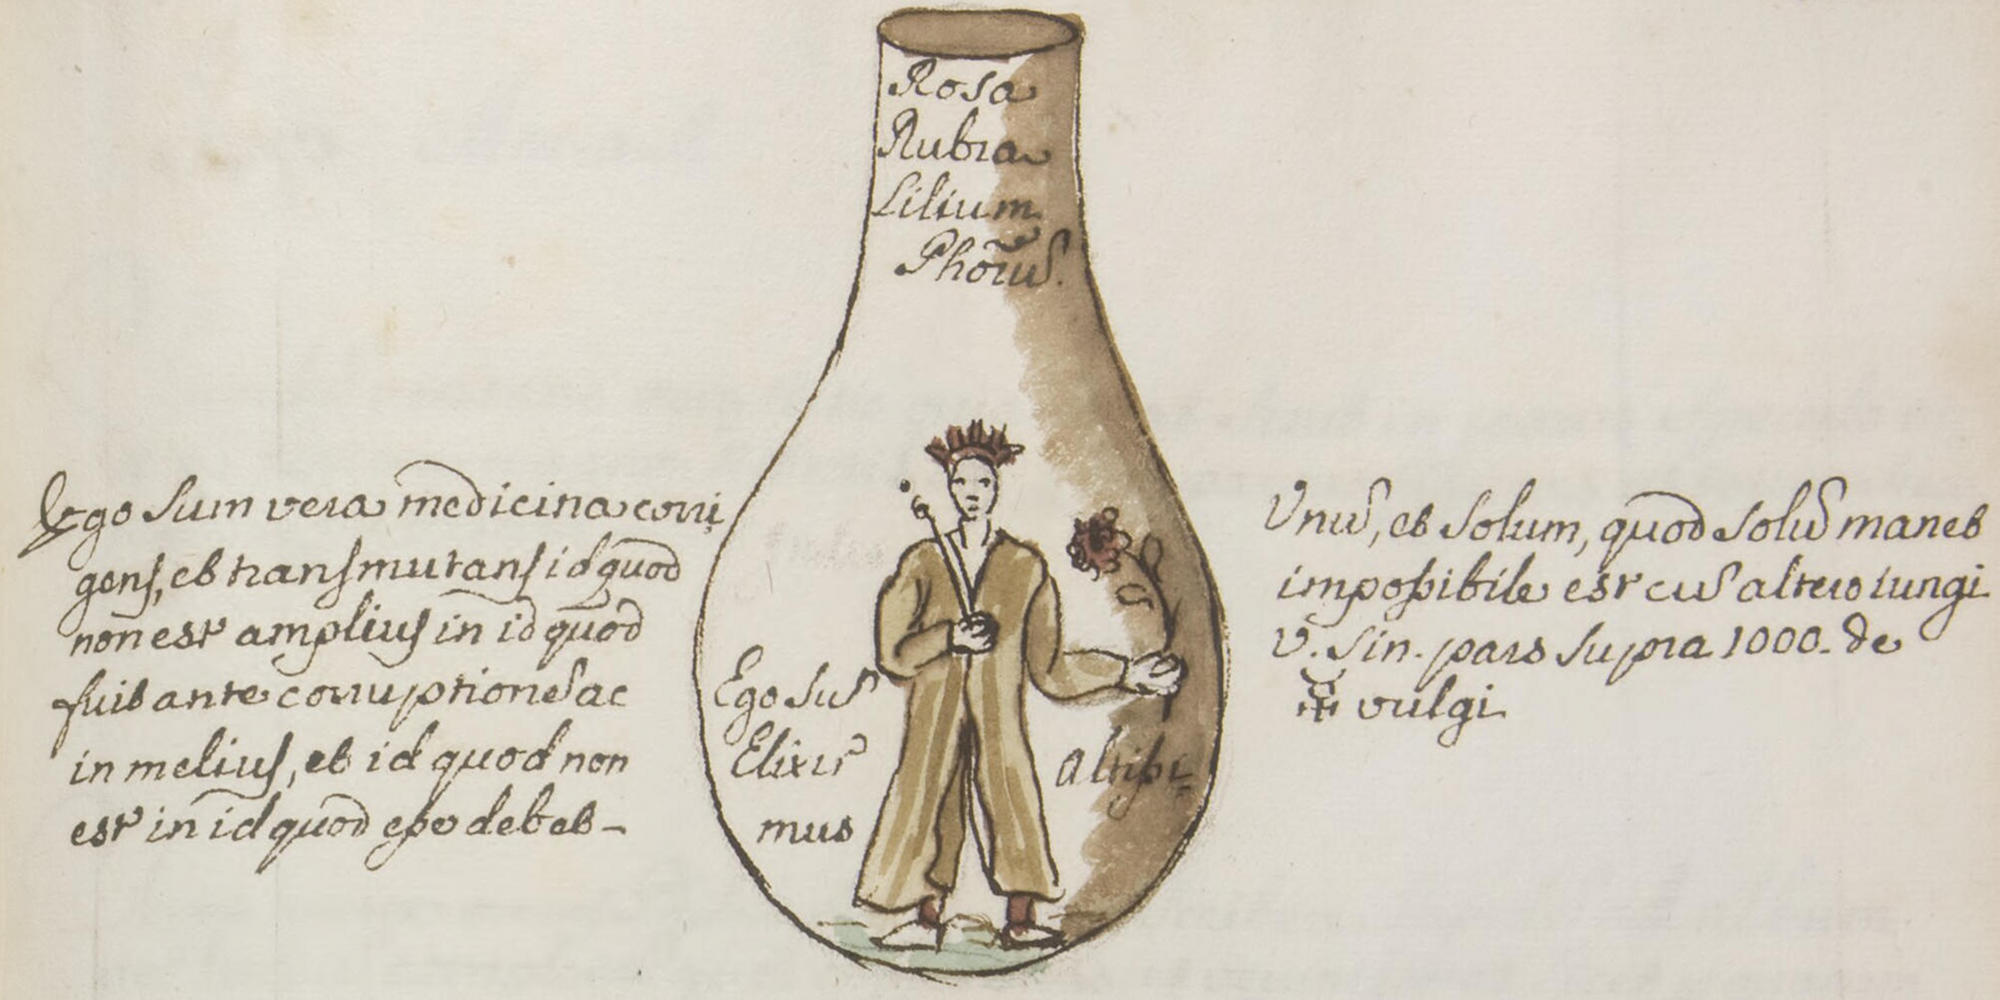 Rosa
Rubra
Lilium
Phōrũ.
Ego sum vera medicina corri
gens, et transmutans id quod
non est amplius in id quod
fuit ante corruptionẽ ac
in melius, et id quod non
est in id quod esse debet –
Ego Sũ
Elixir altissi=
mus
Unũ, et Solum, quod solũ manet
impossibile est cũ altero iungi
V. Sin. pars supra 1000. de
☿ vulgi